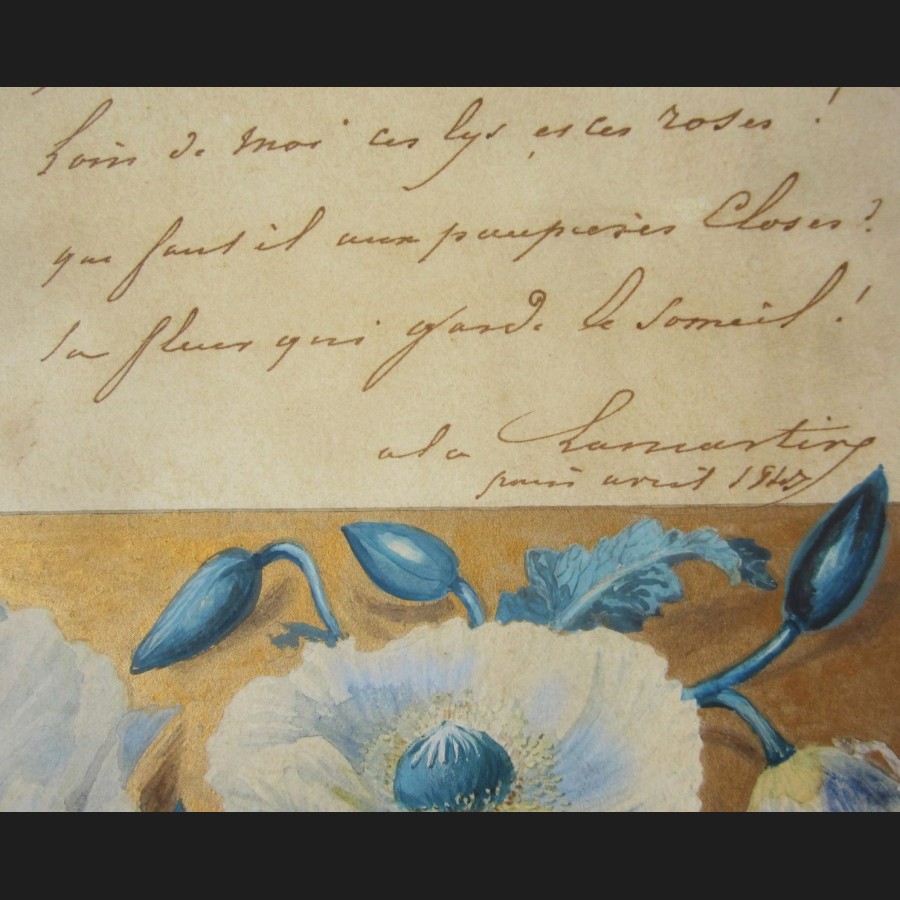 Loin de moi ces lys et ces roses !
que faut il aux paupières Closes ?
la fleur qui garde le someil !
Lamartine
paris avril 1847